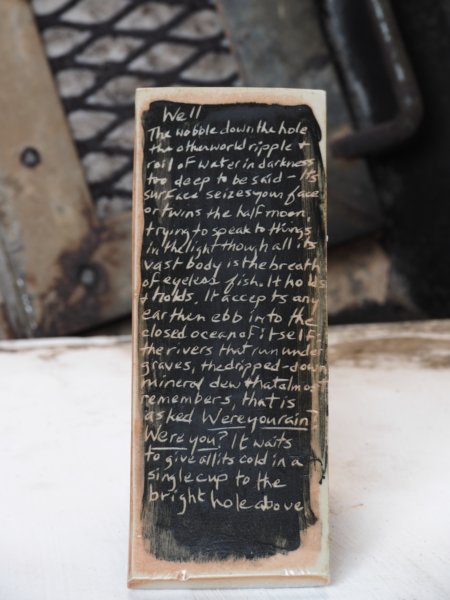 Well
The wobble down the hole
the otherworld ripple &
roil of water in darkness
too deep to be said – Its
surface seizes your face
or twins the half moon
trying to speak to things
in the light though all its
vast body is the breath
of eyeless fish. It holds
& holds. It accepts any
earthen ebb into the
closed ocean of itself:
the rivers that run under
graves, the dripped-down
mineral dew that almost
remembers, that is
asked Were you rain –
Were you? It waits
to give all its cold in a
single cup to the
bright hole above